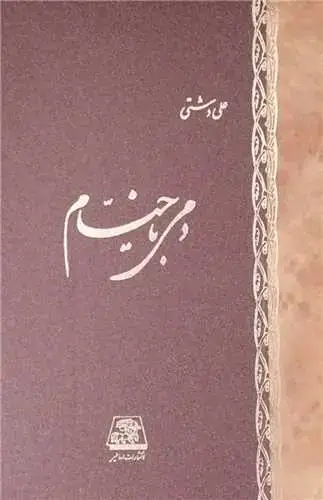 علی دشتی
دمی با خیّام
انتشارات اساطیر